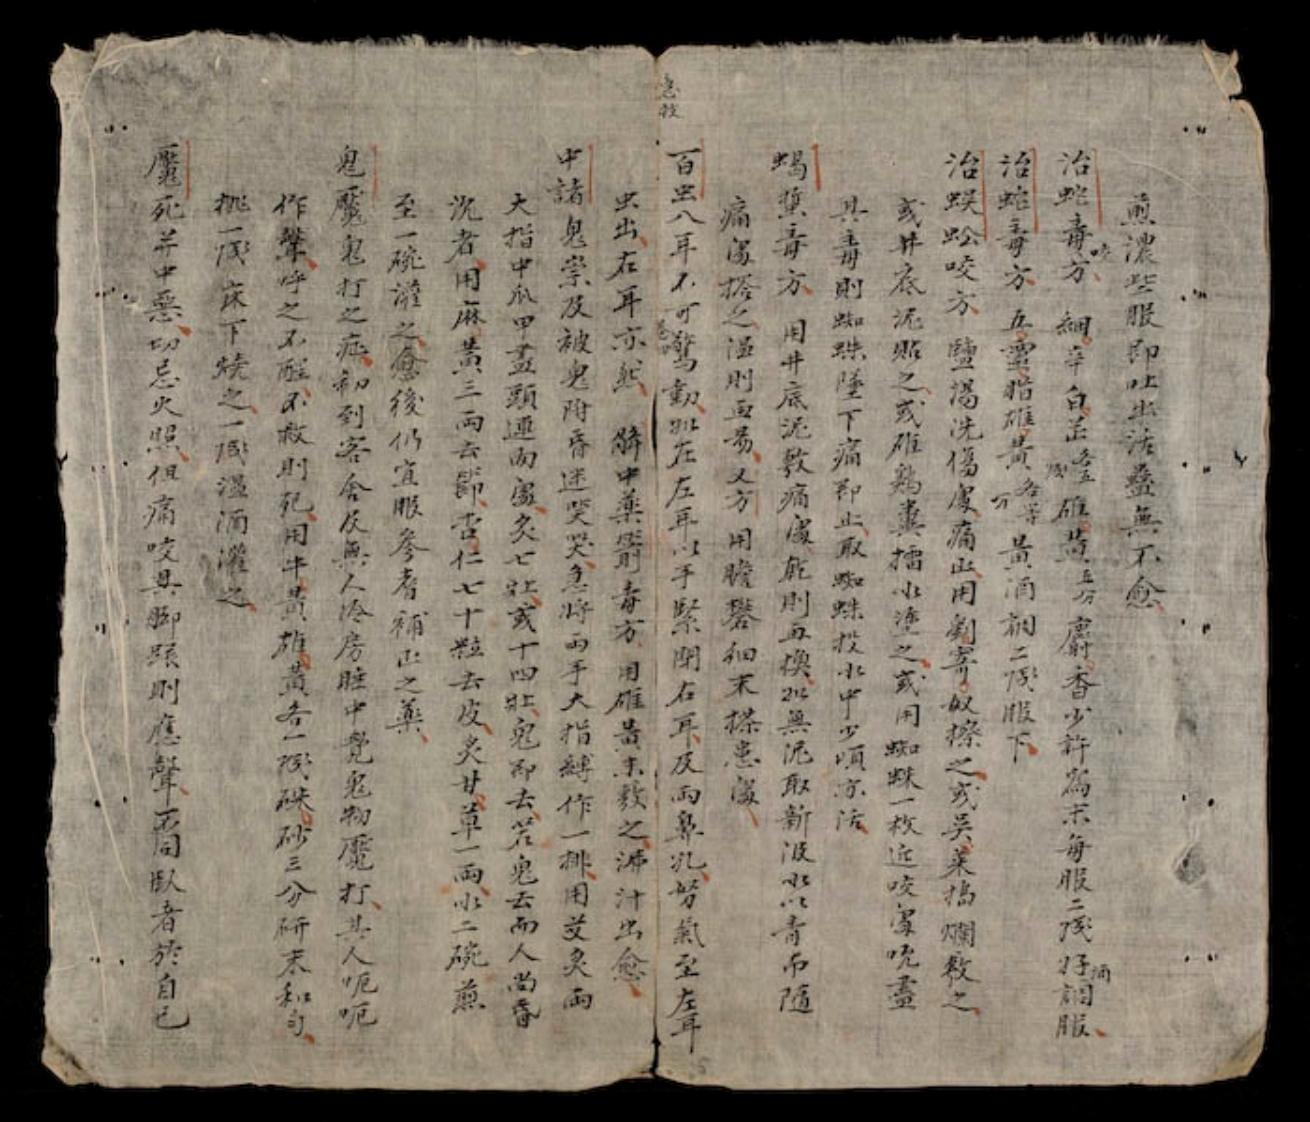 煎濃些服即吐出活蠱無不愈
治蛇毒咬方 細辛 白芷各五戔 雄黃五分 麝香少許為末每服二戔好酒調服
治蛇毒方 五靈脂雄黃各等分 黃酒調二戔服下
治蜈蚣咬方 鹽湯洗傷處痛止用劉寄奴擦之或吳茱搗爛敷之
或井底泥貼之或雄鷄糞擂水塗之或用蜘蛛一枚近咬處吮盡
其毒則蜘蛛墜下痛即止取蜘蛛投水中少頃亦活
蝎蜇毒方 用井底泥敷痛處乾則再換如無泥取新汲水以青布隨
痛處搭之溫則再易又方 用膽礬細末搽患處
急救
百虫入耳不可驚動如在左耳以手緊閉右耳及兩鼻孔努氣至左耳
虫出在耳亦然 解中藥箭毒方 用雄黃末敷之沸汁出愈
中諸鬼祟及被鬼附昏迷哭哭急將兩手大指縛作一排用艾灸兩
大指中爪甲盡頭連兩處灸七壯或十四壯鬼即去若鬼去而人尚昏
沉者用麻黃三兩去節杏仁七十粒去皮炙甘草一兩水二碗煎
至一碗灌之愈後仍宜服參耆補正之藥
鬼魘鬼打之症初到客舍及無人冷房睡中覺鬼物魘打其人呃呃
作聲呼之不醒不救則死用牛黃雄黃各一戔硃砂三分研末和勻
挑一戔床下燒之一戔溫酒灌之
魘死並中惡切忌火照但痛咬其腳跟則應聲 同臥者於自己